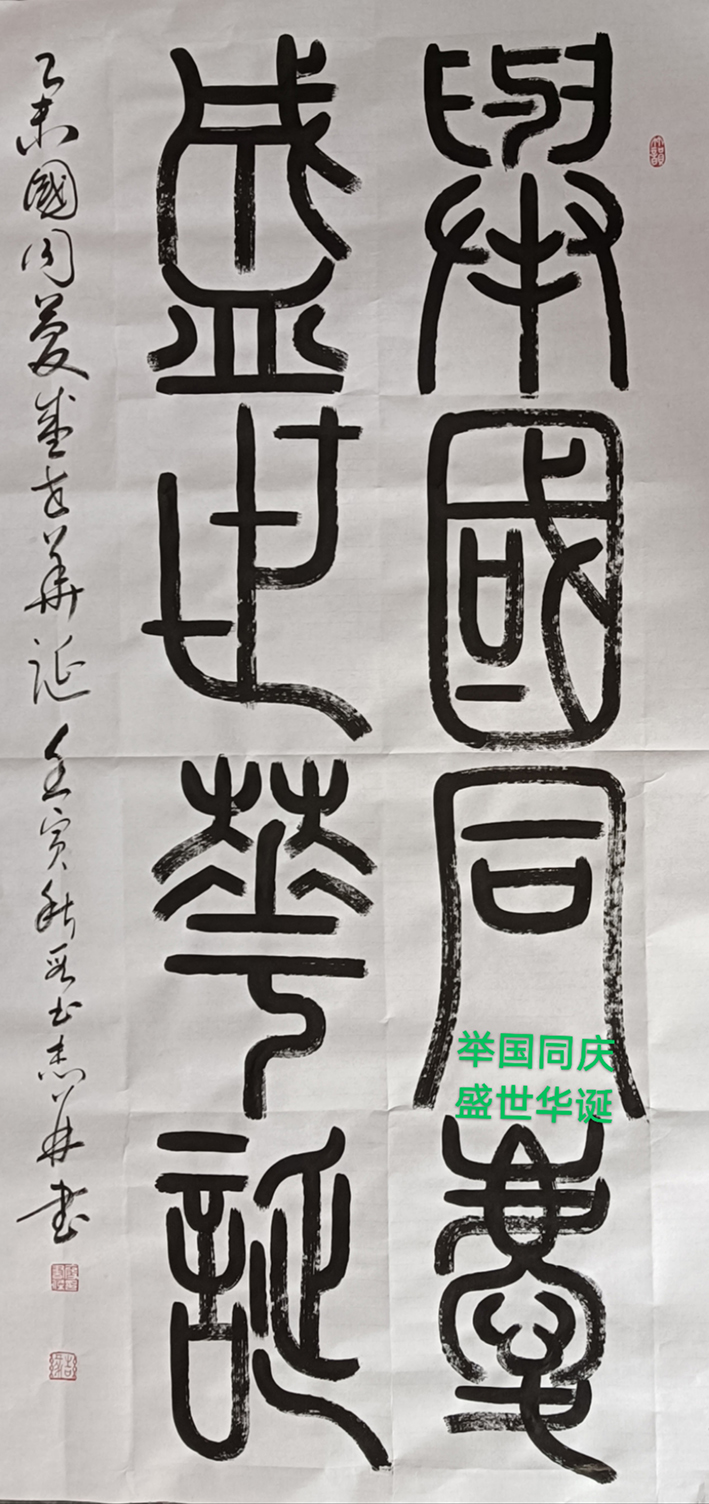 舉國同慶
盛世華誕
國同慶盛世華誕壬寅秋
书
举国同庆
盛世华诞